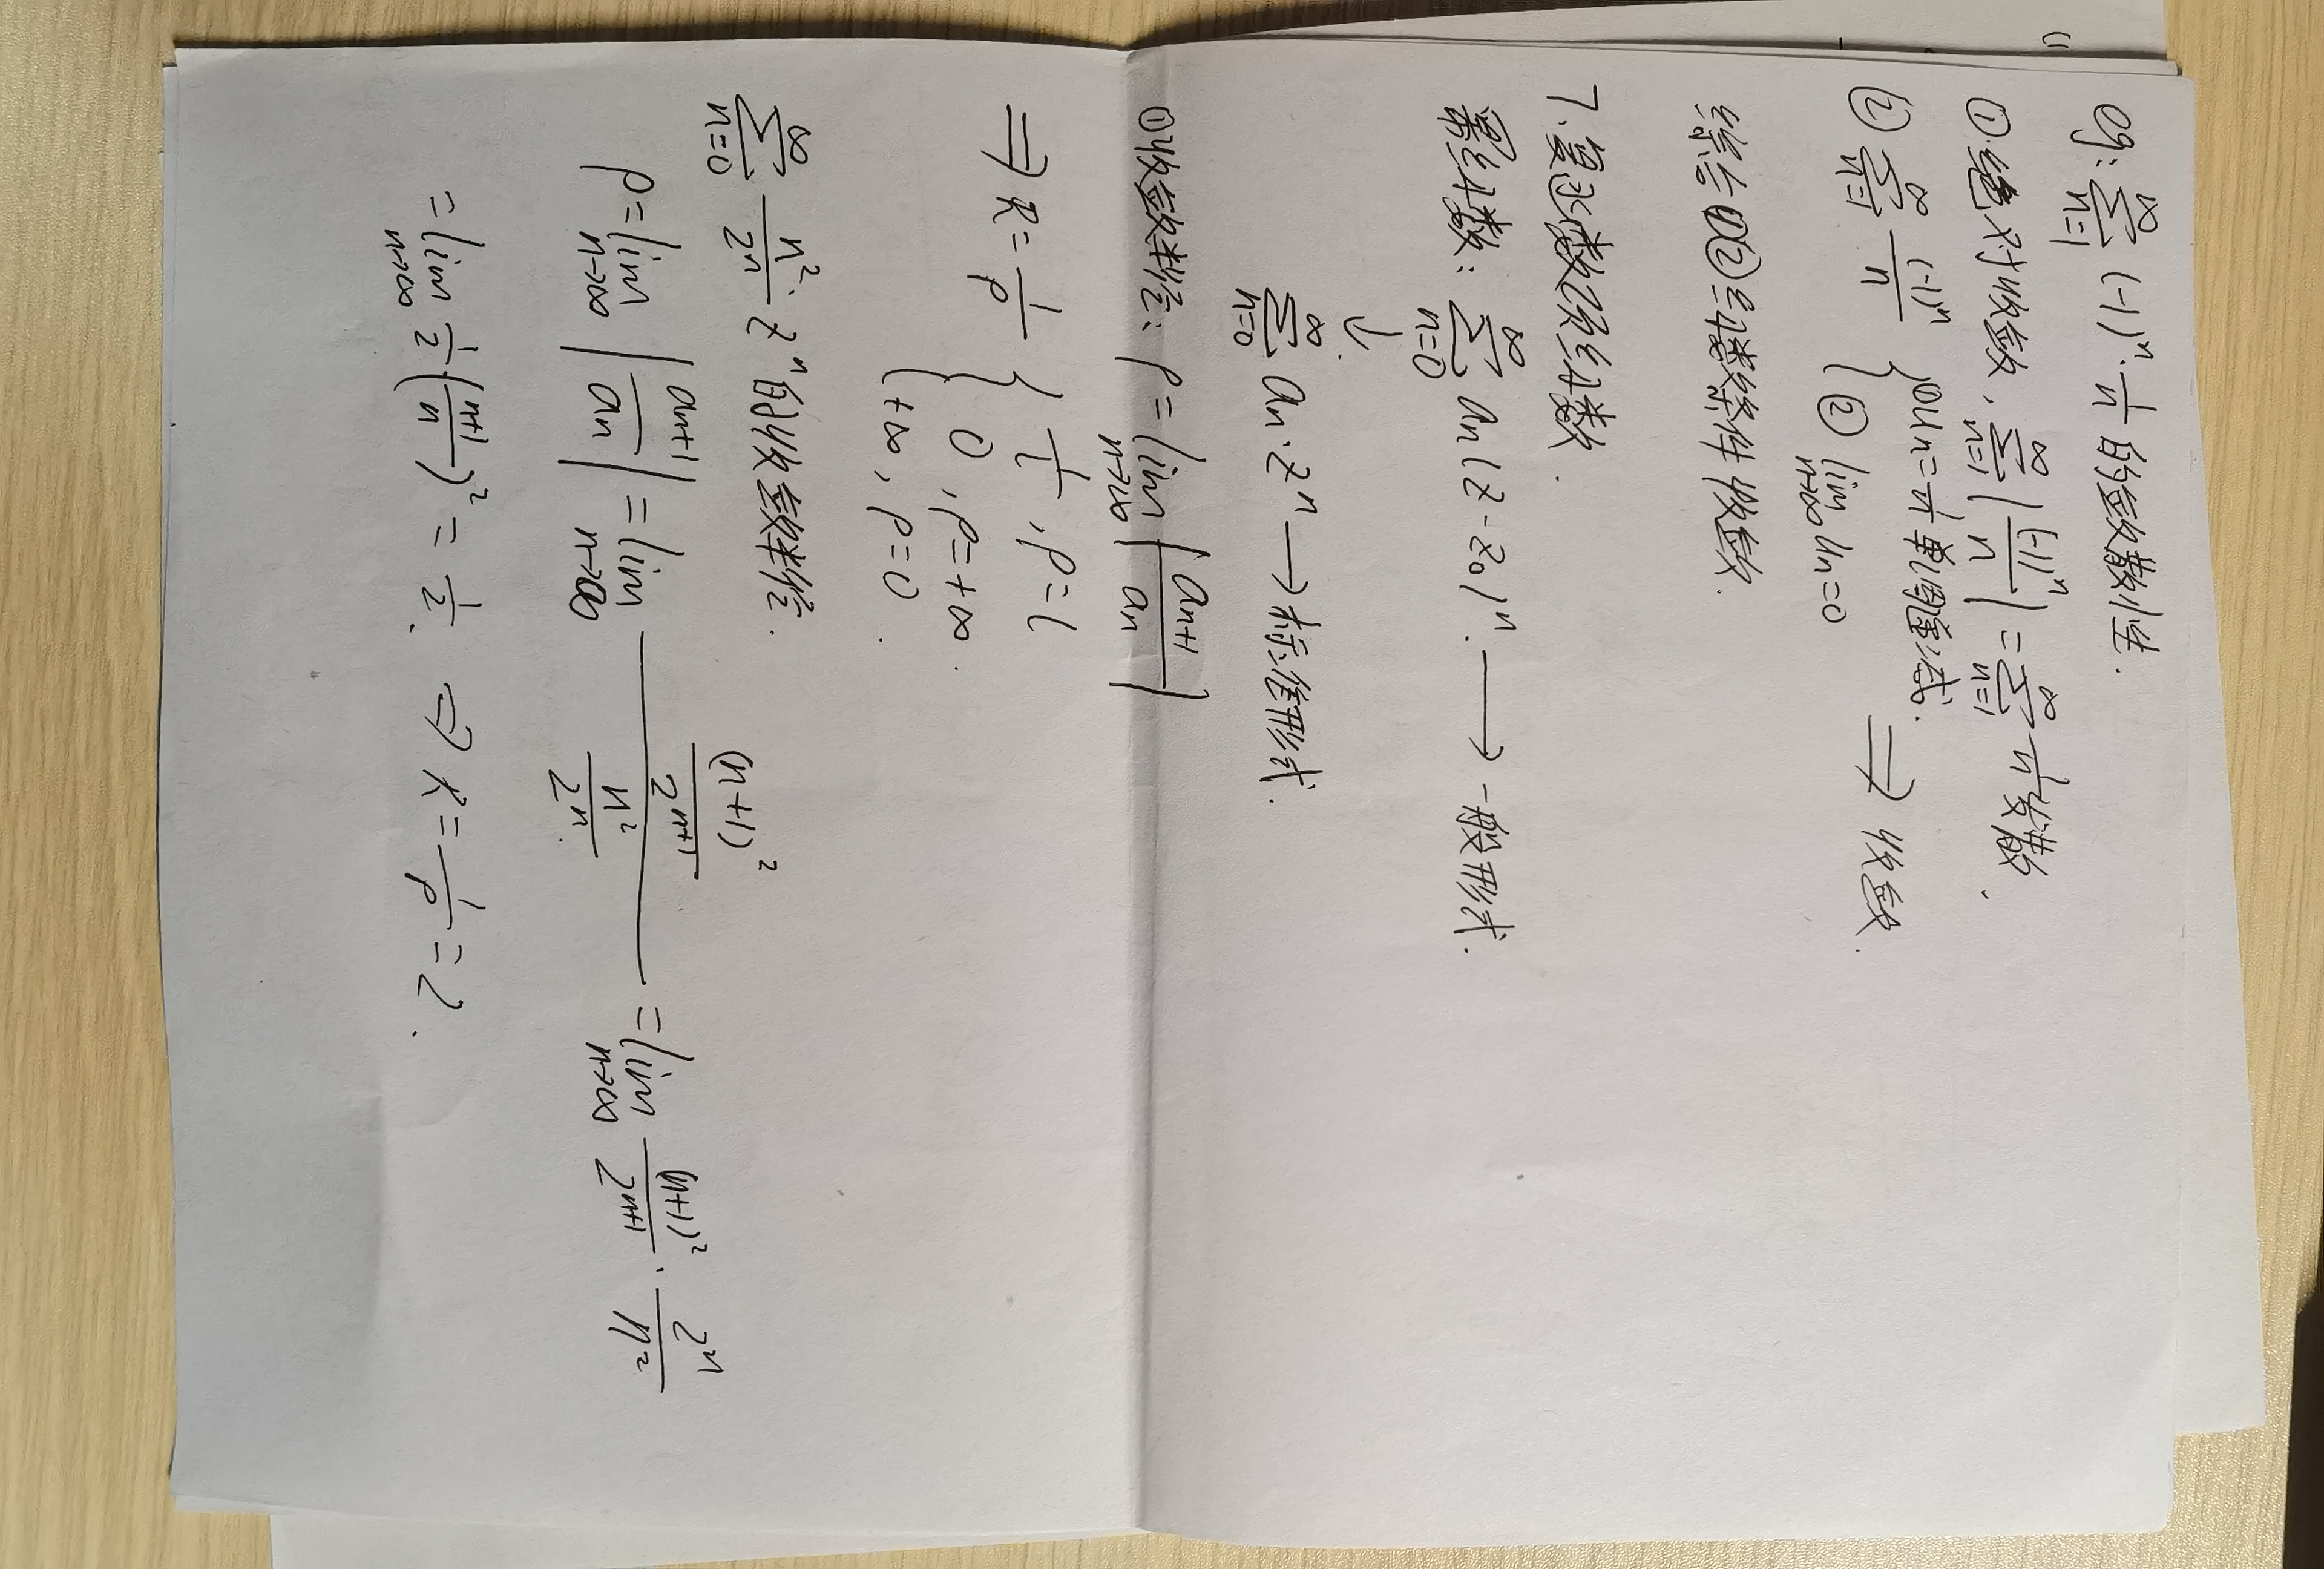 eg: ∑_{n=1}^{∞} (-1)^n · 1/n 的敛散性.
① 绝对收敛, ∑_{n=1}^{∞} |(-1)^n/n| = ∑_{n=1}^{∞} 1/n 发散.
② ∑_{n=1}^{∞} (-1)^n/n { ① |un| = 1/n 单调递减.
② lim_{n→∞} un=0 ⇒ 收敛.
综合①②级数条件收敛.
7. 复变函数项级数.
幂级数: ∑_{n=0}^{∞} an (z-z0)^n. → 一般形式.
↓
∑_{n=0}^{∞} an·z^n → 标准形式.
① 收敛半径: ρ = lim_{n→∞} |an+1/an|
⇒ R = 1/ρ { 1/l, ρ=l
0, ρ=+∞.
+∞, ρ=0.
∑_{n=0}^{∞} n²/2^n · z^n 的收敛半径.
ρ = lim_{n→∞} |an+1/an| = lim_{n→∞} ((n+1)²/2^{n+1})/(n²/2^n) = lim_{n→∞} (n+1)²/2^{n+1} · 2^n/n²
= lim_{n→∞} 1/2 (n+1/n)² = 1/2. ⇒ R = 1/ρ = 2.